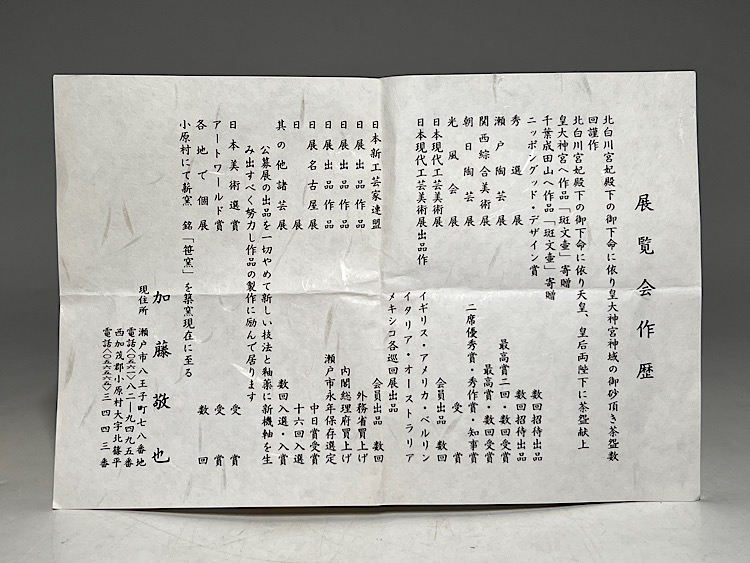 展覧会作歴
北白川宮妃殿下の御下命に依り皇大神宮神域の御砂頂き茶盌数
回謹作
北白川宮妃殿下の御下命に依り天皇、皇后両陛下に茶盌献上
皇大神宮へ作品「斑文壷」寄贈
千葉成田山へ作品「斑文壷」寄贈
ニッポングッド・デザイン賞
秀選展 数回招待出品
瀬戸陶芸展 数回招待出品
関西綜合美術展 最高賞二回・数回受賞
朝日陶芸展 最高賞・数回受賞
光風会展 二席優秀賞・秀作賞・知事賞
日本現代工芸美術展 受賞
日本現代工芸美術展出品作 会員出品 数回
イギリス・アメリカ・ベルリン
イタリア・オーストラリア
メキシコ各巡回展出品
日本新工芸家連盟 会員出品 数回
日展出品作品 外務省買上げ
日展出品作品 内閣総理府買上げ
日展出品作品 瀬戸市永年保存選定
日展名古屋展 中日賞受賞
日展 十六回入選
其の他諸芸展 数回入選・入賞
公募展の出品を一切やめて新しい技法と釉薬に新機軸を生
み出すべく努力し作品の製作に励んで居ります
日本美術選賞 受賞
アートワールド賞 受賞
各地で個展 数回
小原村にて薪窯 銘「笹窯」を築窯現在に至る
加藤敬也
現住所 瀬戸市八王子町七八番地
電話(〇五六一)八二ー九四九五番
西加茂郡小原村大字北篠平
電話(〇五六五六五)三四四三番